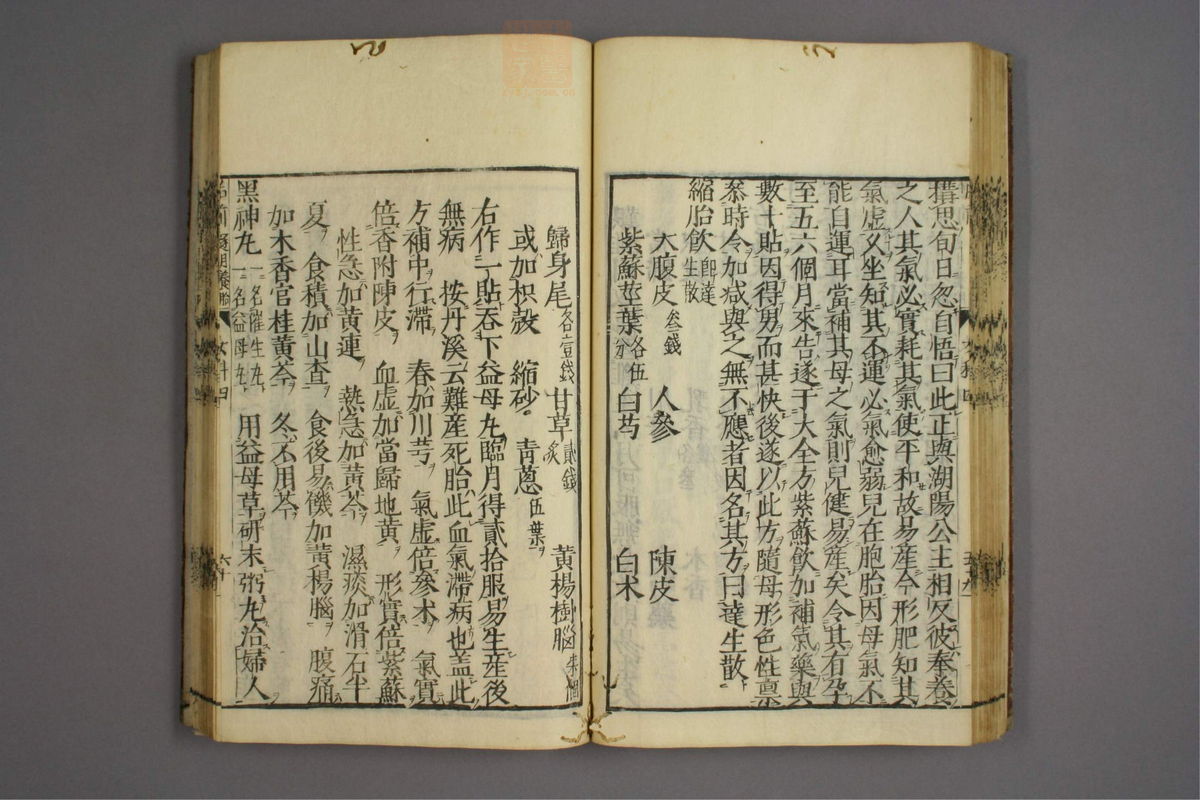 猶思旬日忽自悟曰此正與湖陽公主相反彼奉養
之人其氣必實耗其氣使平和故易産今形肥知其
氣虛久坐知其不運必氣愈弱兒在胞胎因母氣不
能自運耳當補其母之氣則兒健易産矣令其有孕
至五六個月來告遂于大全方紫蘇飲加補氣藥與
數十貼因得男而甚快後遂以此方隨母形色性稟
叅時令加减與之無不應者因名其方曰達生散
縮胎飲 即達生散
大腹皮 叁錢 人參 陳皮
紫蘇莖葉 各伍分 白芍 白术
歸身尾 各壹錢 甘草 炙貳錢 黄楊樹腦 柒個
或加枳殼 縮砂 青蔥 伍葉
右作一貼吞下益母丸臨月得貳拾服易生産後
無病 按丹溪云難産死胎此血氣滯病也盖此
方補中行滯 春加川芎 氣虛倍參术 氣實
倍香附陳皮 血虛加當歸地黄 形實倍紫蘇
性急加黄連 熱急加黄芩 濕痰加滑石半
夏 食積加山查 食後易饑加黄楊腦 腹痛
加木香官桂黄芩 冬不用芩
黑神丸 一名催生丸 一名益母丸 用益母草研末粥丸治婦人
女科四
六十